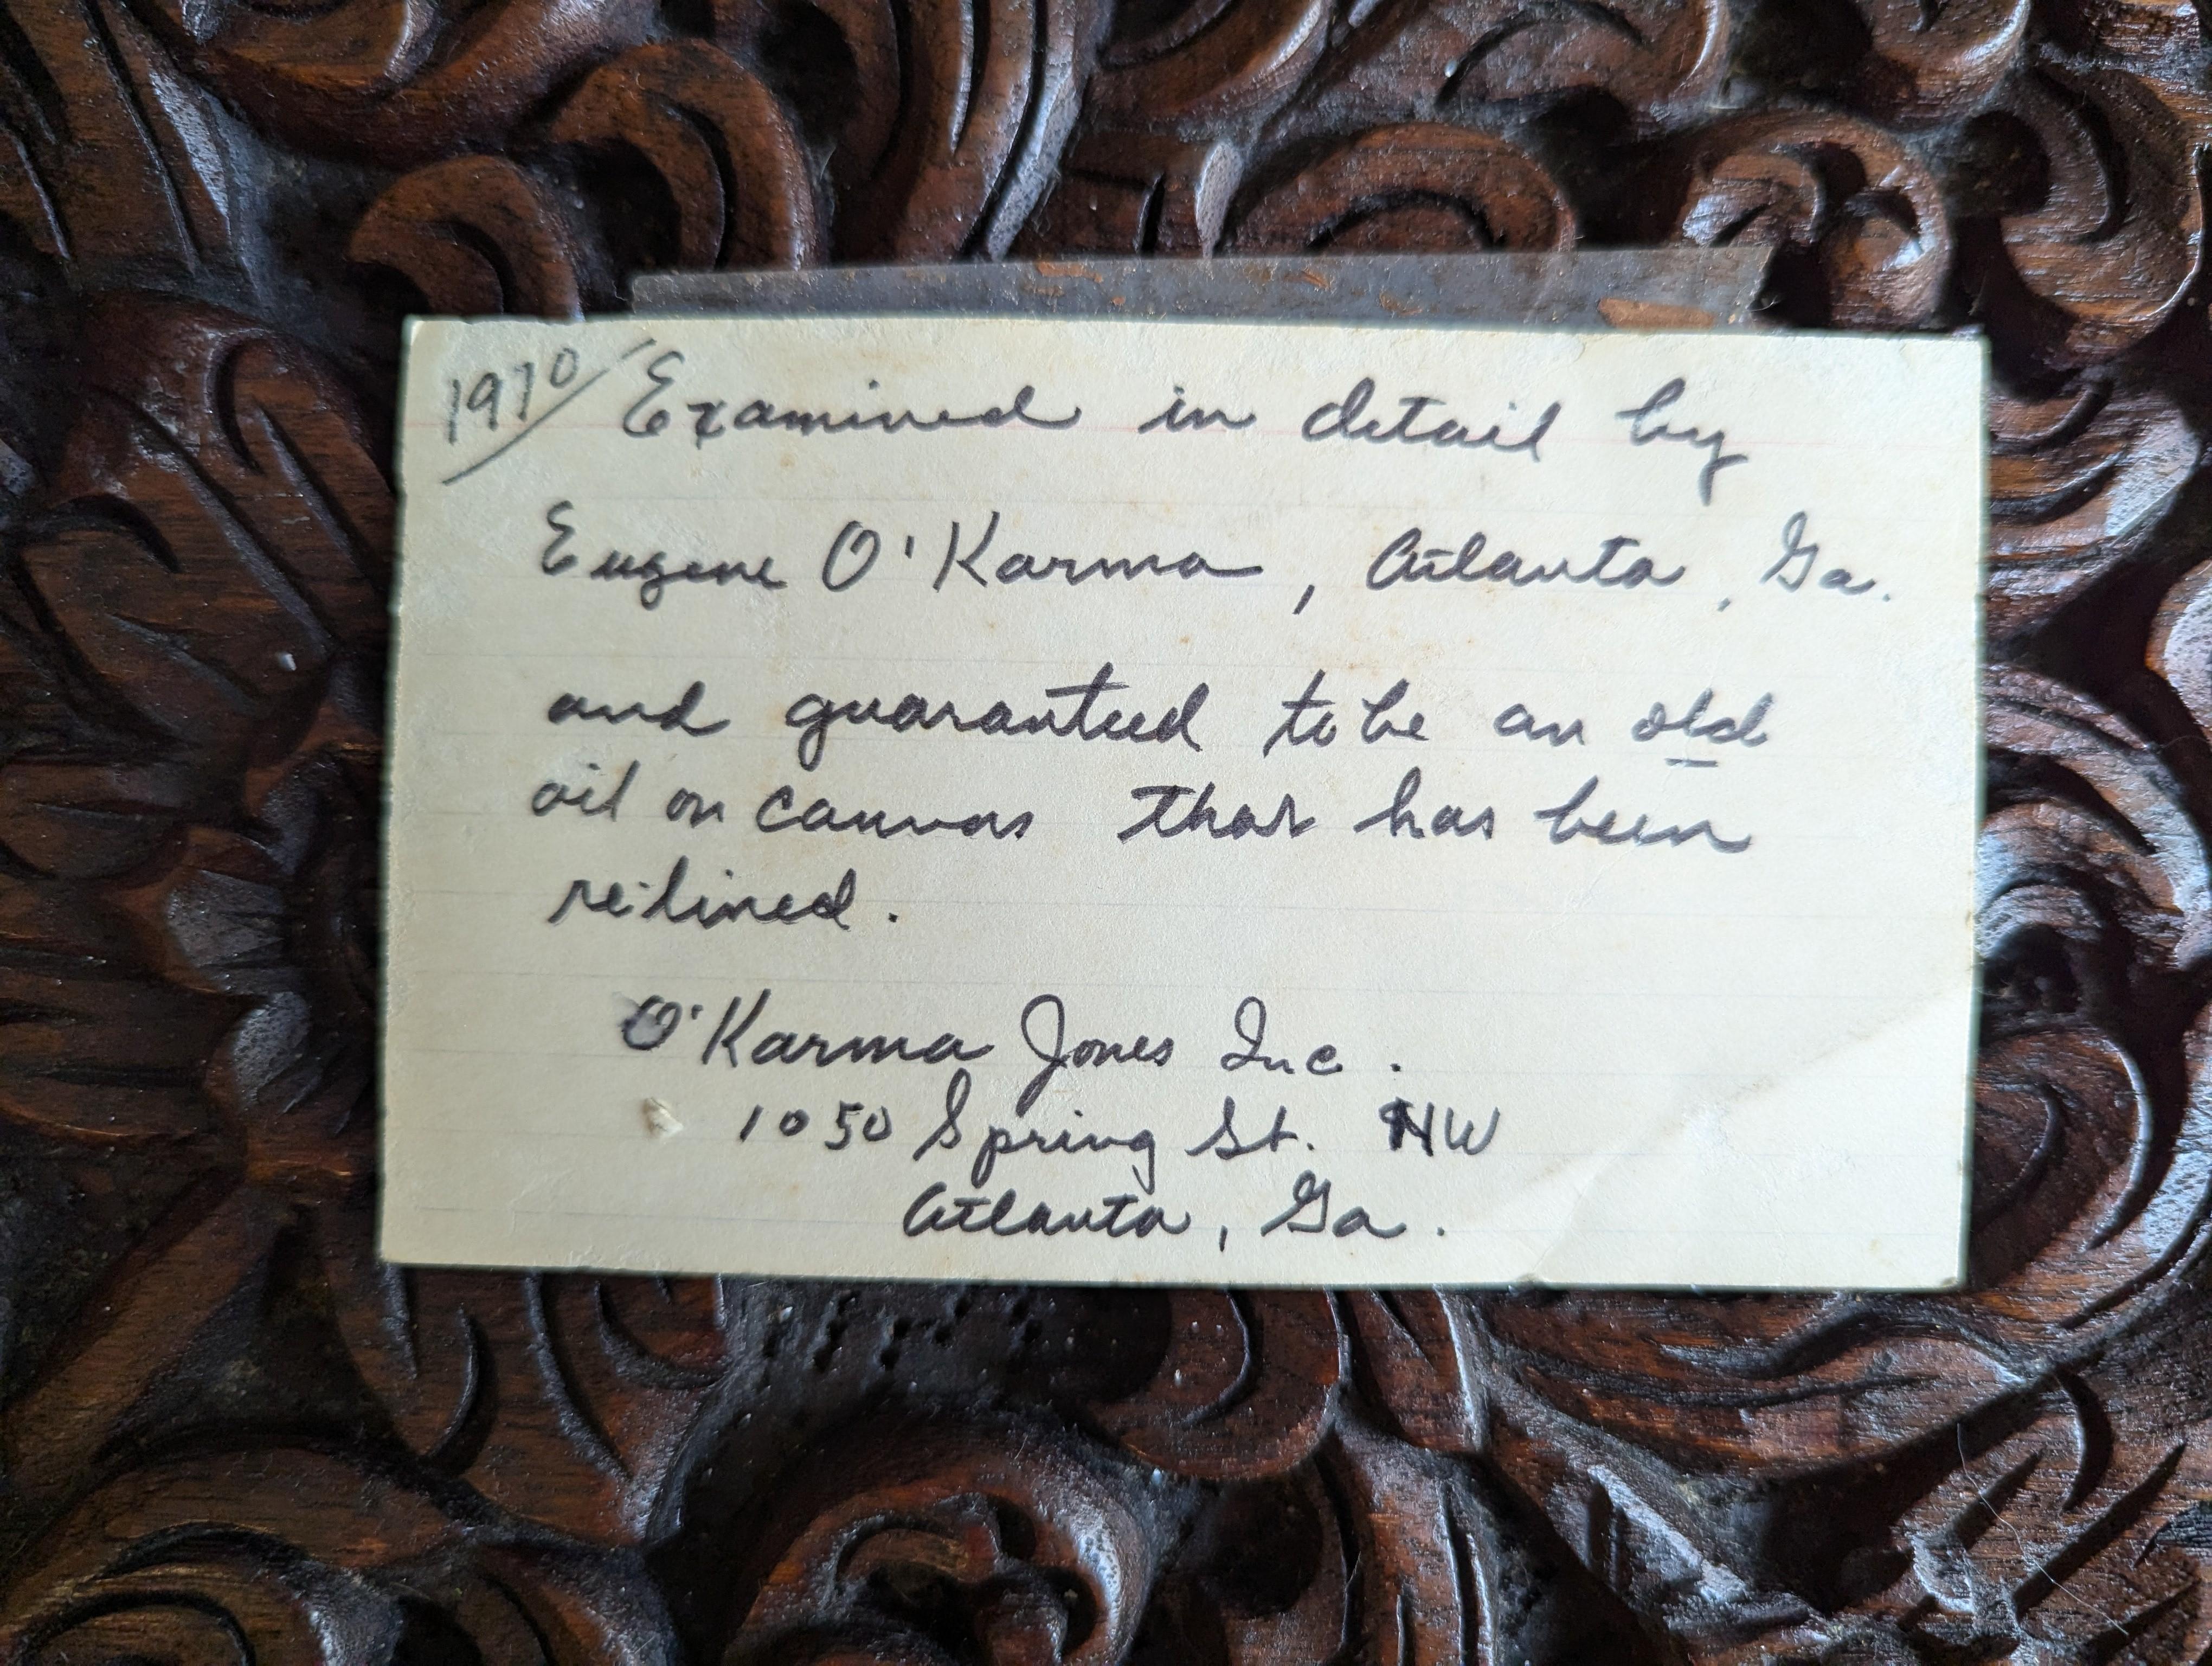 1970/ Examined in detail by
Eugene O'Karma, Atlanta, Ga.
and guaranteed to be an old
oil on canvas that has been
re-lined.
O'Karma Jones Inc.
1050 Spring St. NW
Atlanta, Ga.